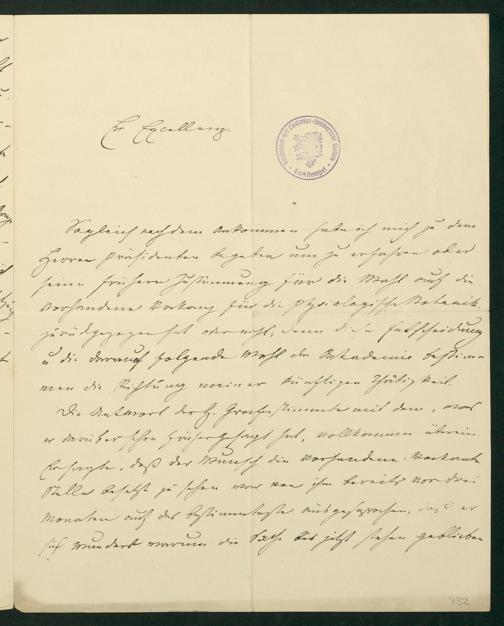 Ew Excellenz.
Bibliothek der Ludwigs-Universität Giessen
Sogleich nach dem Ankommen habe ich mich zu dem
Herrn Präsidenten begeben um zu erfahren ob er
seine frühere Zustimmung für die Wahl auf die
vorhandene Vakanz für die physiologische Botanik
zurückgezogen hat oder nicht, denn diese Entscheidung
u die darauf folgende Wahl der Akademie bestim-
men die Richtung meiner künftigen Thätigkeit.
Die Antwort des H. Grafen stimmte mit dem, was
er darüber schon früher gesagt hat, vollkommen überein.
Er sagte, daß der Wunsch die vorhandene vakante
Stelle besetzt zu sehen war von ihm bereits vor drei
Monaten auf das bestimmteste ausgesprochen, daß er
sich wundert warum die Sache bis jetzt stehen geblieben
732